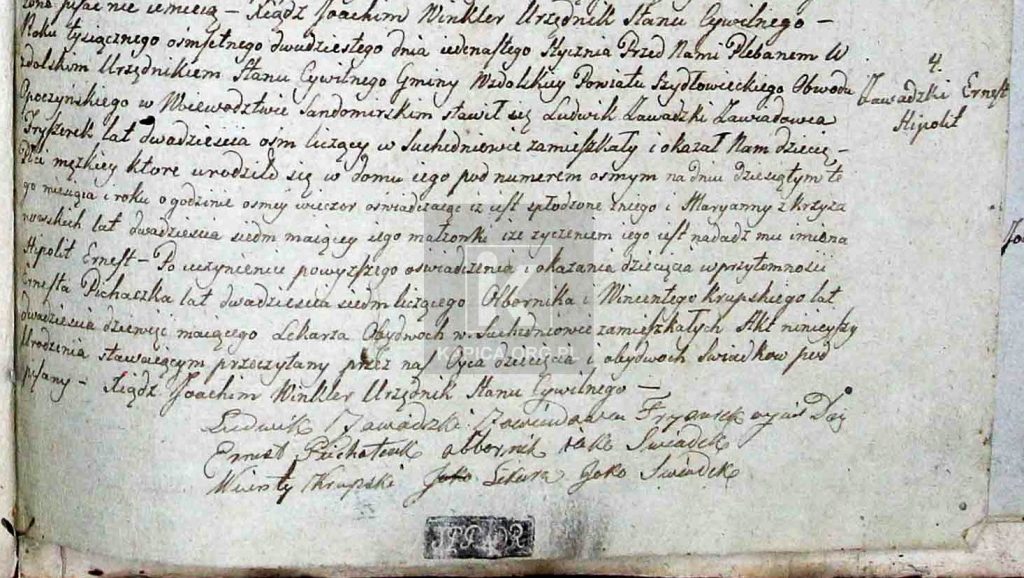 pisać nie umieią – Xiądz Joachim Winkler Urzędnik Stanu Cywilnego –
Roku tysiącznego ośmsetnego dwudziestego dnia iedenastego Stycznia Przed Nami Plebanem W
zdolskim Urzędnikiem Stanu Cywilnego Gminy Wzdolskiey Powiatu Szydłowieckiego Obwodu
Opoczyńskiego w Woiewodztwie Sandomirskim stawił się Ludwik Zawadzki Zawiadowca
Fryszerek lat dwadzieścia ośm liczący w Suchedniowie zamieszkały i okazał Nam dziecię –
Płci męzkiey ktore urodziło się w domu iego pod numerem osmym na dniu dziesiątym te
go miesiąca i roku o godzinie osmey wieczor oswiadczaiąc iz iest spłodzone z niego i Maryanny z Krzyza
nowskich lat dwadziescia siedm maiącey iego małzonki i ze zyczeniem iego iest nadadz mu imiona
Hipolit Ernest – Po uczynieniu powyzszego oswiadczenia i okazania dziecięcia w przytomnosci
Ernesta Pichaczka lat dwadziescia siedm liczącego Olbornika i Wincentego Krupskiego lat
dwadziescia dziewięć maiącego Lekarza Obydwoch w Suchedniowie zamieszkałych Akt ninieyszy
Urodzenia stawaiącym przeczytany przez nas Oyca dziecięcia i obydwoch Swiadkow pod
pisany – Xiądz Joachim Winkler Urzędnik Stanu Cywilnego –
Ludwik Zawadzki Zawiadowca Fryszerek
Ernest olbornik iako Swiadek
Krupski Jako Lekarz Jako Swiadek
4.
Zawadzki Ernest
Hipolit
K
KAPICA.ORG.PL